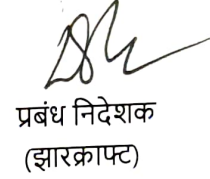 प्रबंध निदेशक
(झारक्राफ्ट)